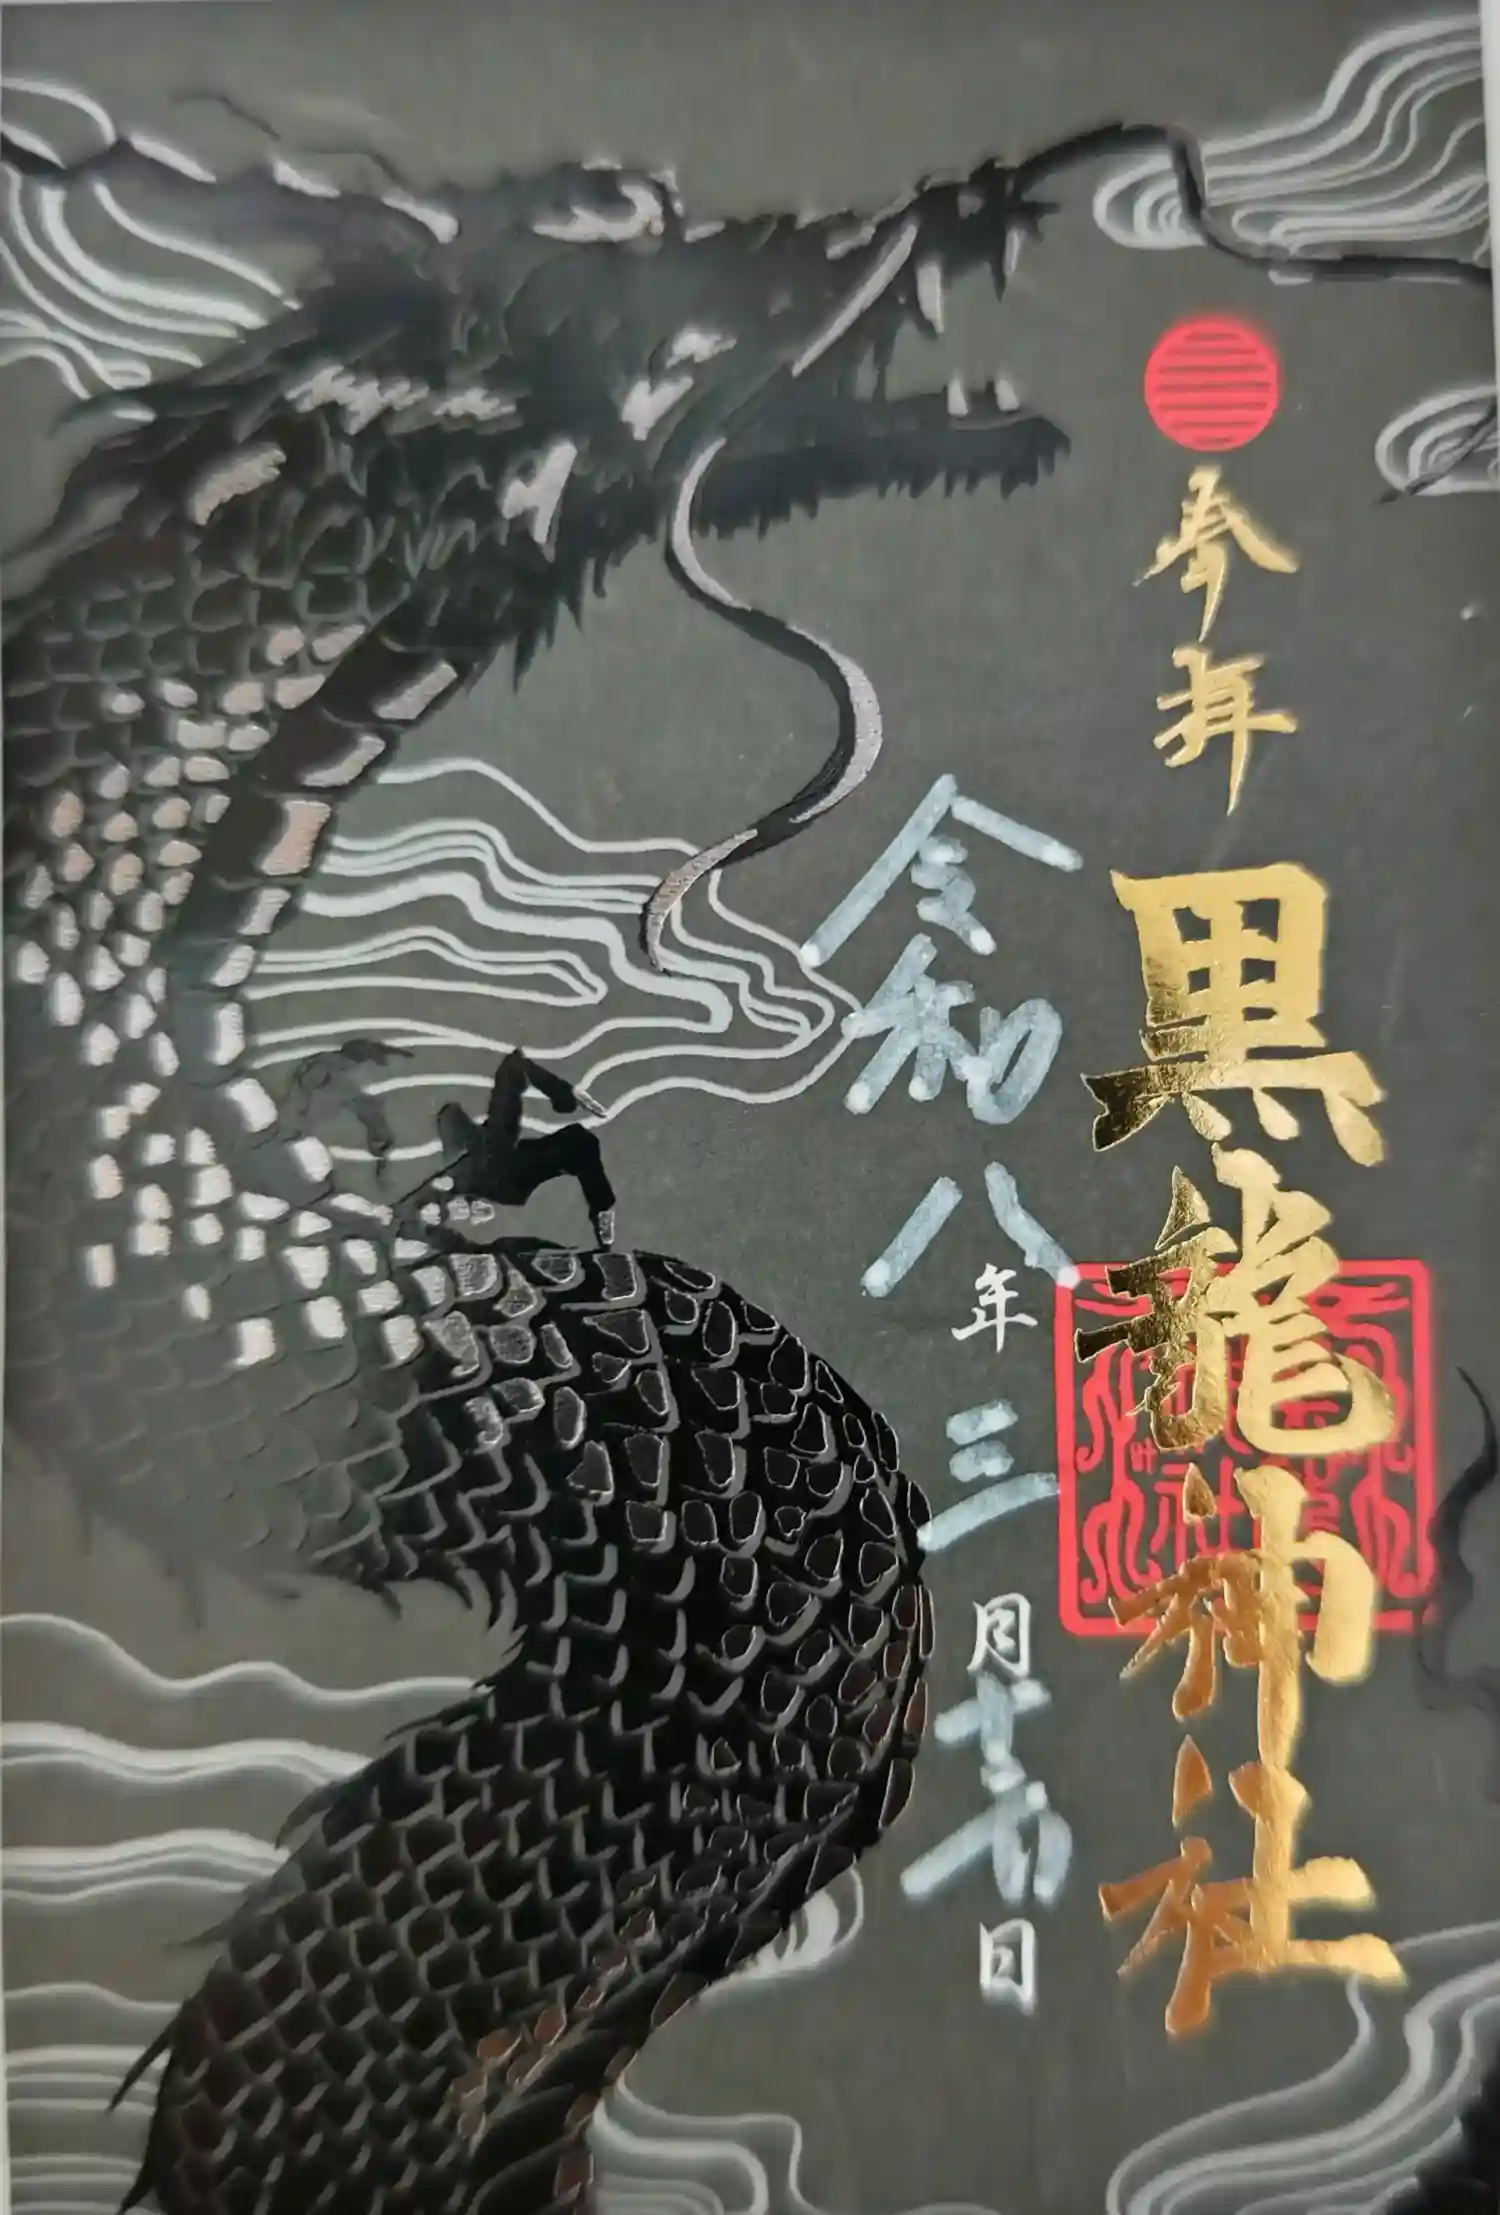 奉拝
黒龍神社
令和八年三月十日